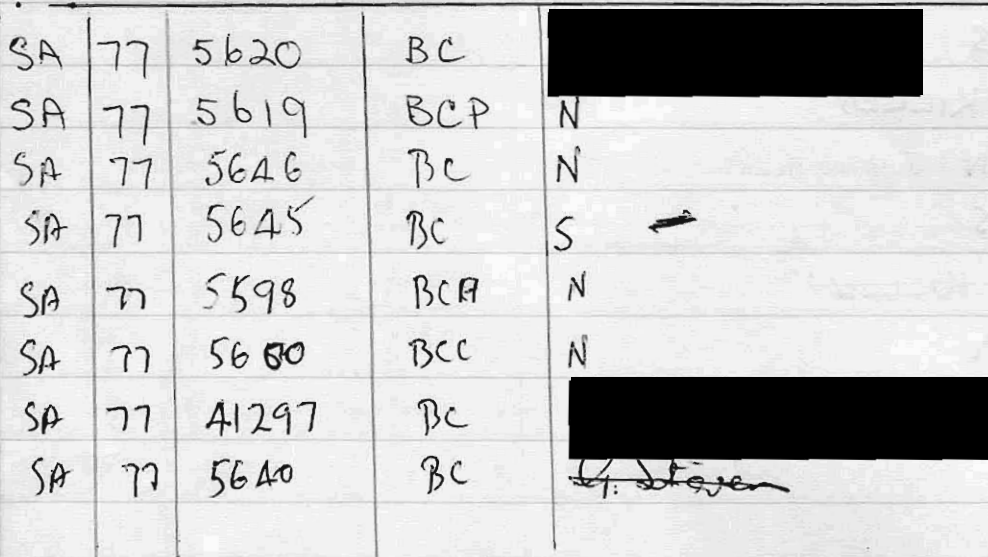 SA 77 5620 BC
SA 77 5619 BCP N
SA 77 5646 BC N
SA 77 5645 BC S
SA 77 5598 BCA N
SA 77 5660 BCC N
SA 77 41297 BC
SA 77 5640 BC